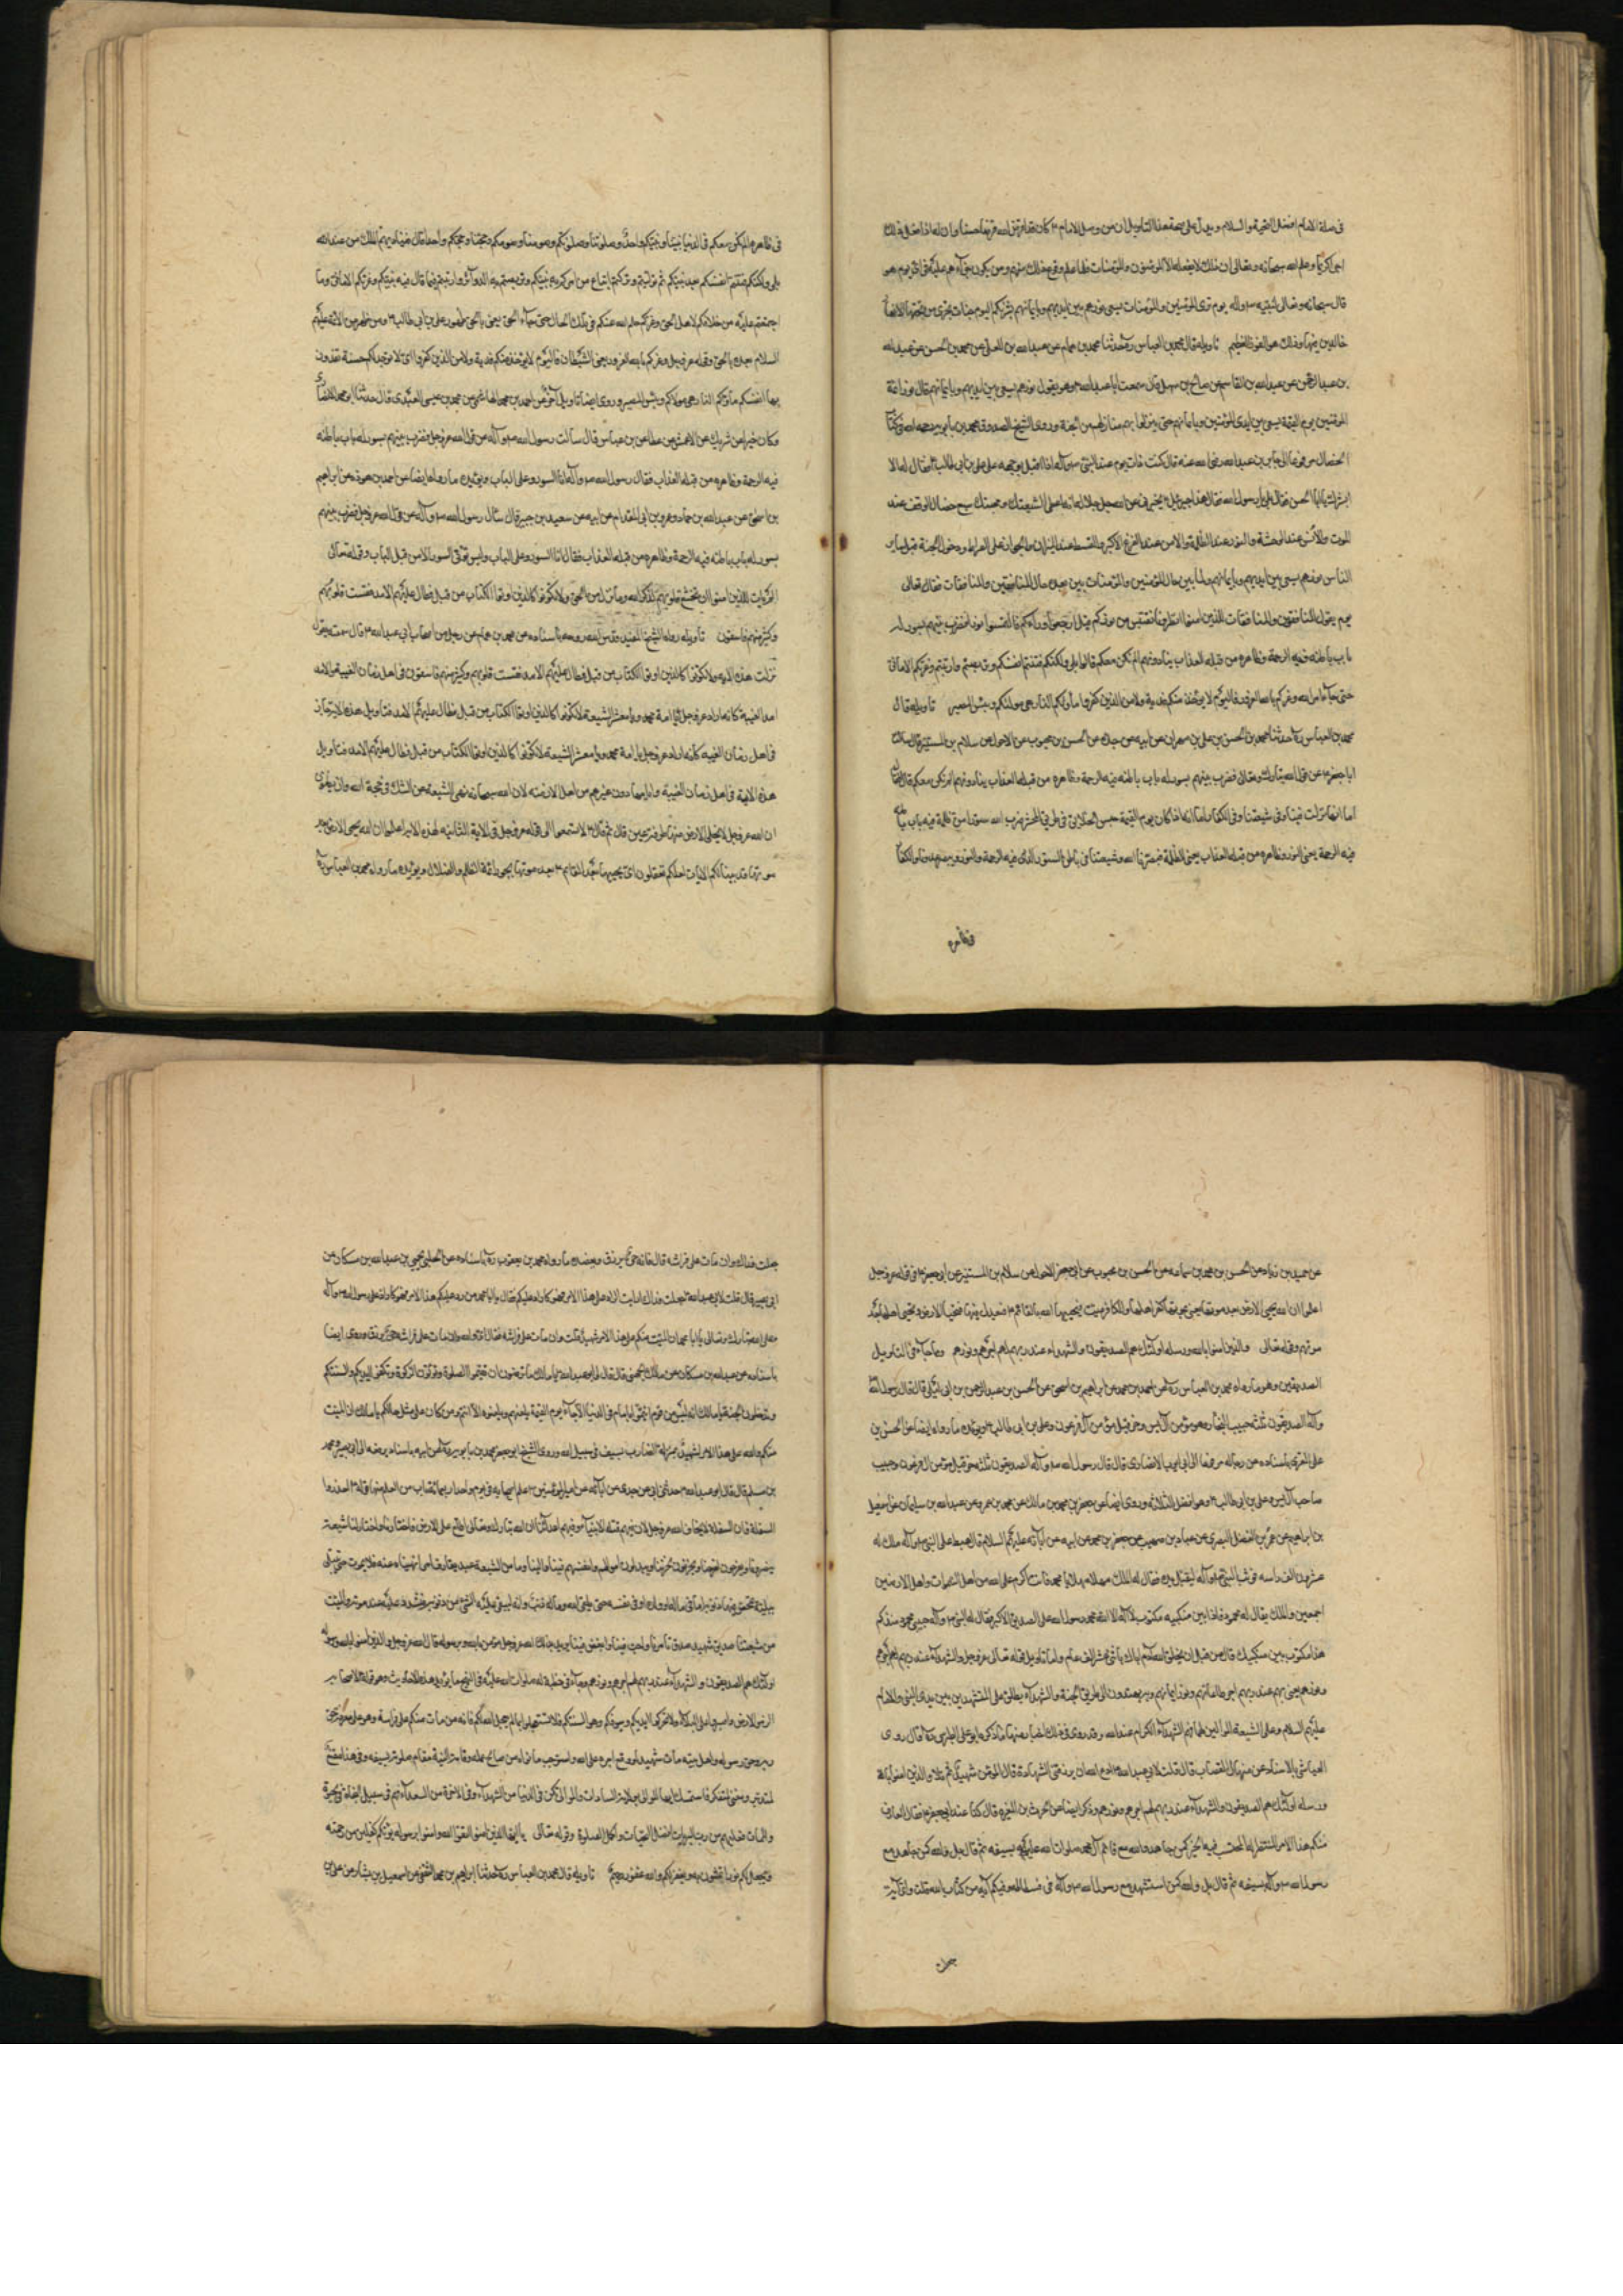 في صلة الامام افضل التحية والسلام ويدل على صحة هذا التاويل ان من وصل الامام ع كان قد اقرض الله قرضا حسنا وان له اذا فعل ذلك
اجرا كريما وعلم الله سبحانه وتعالى ان ذلك لا يفعله الا المؤمنون والمؤمنات فلما علم وقوع ذلك منهم ومن يكون جزآءهم عليه في اخرتهم هو
قال سبحانه وتعالى لنبيه ص وآله يوم ترى المؤمنين والمؤمنات يسعى نورهم بين ايديهم وبايمانهم بشريكم اليوم جنات تجرى من تحتها الانهار
خالدين فيها وذلك هو الفوز العظيم تاويله قال محمد بن العباس ره حدثنا محمد بن همام عن عبد الله بن العلا عن محمد بن الحسن عن عبد الله
بن عبد الرحمن عن عبد الله بن القاسم عن صالح بن سهل قال سمعت ابا عبد الله ع وهو يقول نورهم يسعى بين ايديهم وبايمانهم قال نور ائمة
المؤمنين يوم القيمة يسعى بين ايدى المؤمنين وبايمانهم حتى ينزلوا بهم منازلهم من الجنة وروى الشيخ الصدوق محمد بن بابويه رحمه الله في كتاب
الخصال مرفوعا الى جابر بن عبد الله رضي الله عنه قال كنت ذات يوم عند النبي ص وآله اذا اقبل بوجهه على علي بن ابي طالب ع فقال له الا
ابشرك يا ابا الحسن فقال بلى يا رسول الله فقال هذا جبرئيل يخبرني عن الله جل جلاله انه اعطى شيعتك ومحبيك سبع خصال الرفق عند
الموت والانس عند الوحشة والنور عند الظلمة والامن عند الفزع الاكبر والقسط عند الميزان والجواز على الصراط ودخول الجنة قبل ساير
الناس نورهم يسعى بين ايديهم وبايمانهم ولما بين حال المؤمنين والمؤمنات بين بعده حال المنافقين والمنافقات فقال تعالى
يوم يقول المنافقون والمنافقات للذين امنوا انظرونا نقتبس من نوركم قيل ارجعوا ورآءكم فالتمسوا نورا فضرب بينهم بسور له
باب باطنه فيه الرحمة وظاهره من قبله العذاب ينادونهم الم نكن معكم قالوا بلى ولكنكم فتنتم انفسكم وتربصتم وارتبتم وغرتكم الاماني
حتى جآء امر الله وغركم بالله الغرور فاليوم لا يؤخذ منكم فدية ولا من الذين كفروا مأويكم النار هي موليكم وبئس المصير تاويله قال
محمد بن العباس ره حدثنا محمد بن الحسن بن علي بن مهران عن ابيه عن جده عن الحسن بن محبوب عن الاحول عن سلام بن المستنير قال سالت
ابا جعفر ع عن قول الله تبارك وتعالى فضرب بينهم بسور له باب باطنه فيه الرحمة وظاهره من قبله العذاب ينادونهم الم نكن معكم قال فقال
اما انها نزلت فينا وفي شيعتنا وفي الكفار اما انه اذا كان يوم القيمة حبس الخلايق في طريق المحشر ضرب الله سورا من ظلمة فيه باب باطنه
فيه الرحمة يعني النور وظاهره من قبله العذاب يعني الظلمة فيصيرنا الله وشيعتنا في باطن السور الذي فيه الرحمة والنور وعدونا والكفار
في ظاهره
في ظاهره الم نكن معكم في الدنيا نبينا ونبيكم واحد وصلوتنا وصلوتكم وصومنا وصومكم وحجنا وحجكم واحد قال فيناديهم الملك من عند الله
بلى ولكنكم فتنتم انفسكم بعد نبيكم ثم توليتم وتركتم اتباع من امركم به نبيكم وتربصتم به الدوآئر وارتبتم فيما قال فيه نبيكم وغرتكم الاماني وما
اجتمعتم عليه من خلافكم لاهل الحق وغركم حلم الله عنكم في تلك الحال حتى جآء الحق يعني بالحق ظهور علي بن ابي طالب ع ومن ظهر من الائمة عليهم
السلام بعده بالحق وقوله عز وجل وغركم بالله الغرور يعني الشيطان فاليوم لا يؤخذ منكم فدية ولا من الذين كفروا اى لا توجد لكم حسنة تفدون
بها انفسكم مأويكم النار هي موليكم وبئس المصير وروى ايضا تاويل آخر عن احمد بن محمد الهاشمي عن محمد بن عيسى العبيدى قال حدثنا ابو محمد الانصارى
وكان خيرا عن شريك عن الاعمش عن عطا عن بن عباس قال سالت رسول الله ص وآله عن قول الله عز وجل فضرب بينهم بسور له باب باطنه
فيه الرحمة وظاهره من قبله العذاب فقال رسول الله ص وآله انا السور وعلي الباب ويؤيده ما رواه ايضا عن احمد بن هوذه عن ابراهيم
بن اسحق عن عبد الله بن حماد وعمرو بن ابي المقدام عن ابيه عن سعيد بن جبير قال سئل رسول الله ص وآله عن قول الله عز وجل فضرب بينهم
بسور له باب باطنه فيه الرحمة وظاهره من قبله العذاب فقال انا السور وعلي الباب وليس يؤتى السور الا من قبل الباب وقوله تعالى
الم يان للذين امنوا ان تخشع قلوبهم لذكر الله وما نزل من الحق ولا يكونوا كالذين اوتوا الكتاب من قبل فطال عليهم الامد فقست قلوبهم
وكثير منهم فاسقون تاويله رواه الشيخ المفيد قدس الله روحه باسناده عن محمد بن همام عن رجل من اصحاب ابي عبد الله ع قال سمعته يقول
نزلت هذه الاية ولا تكونوا كالذين اوتوا الكتاب من قبل فطال عليهم الامد فقست قلوبهم وكثير منهم فاسقون في اهل زمان الغيبة والامد
امد الغيبة كانه اراد عز وجل يا امة محمد ويا معشر الشيعة لا تكونوا كالذين اوتوا الكتاب من قبل فطال عليهم الامد فتاويل هذه الاية جار
في اهل زمان الغيبة كانه اراد عز وجل يا امة محمد ويا معشر الشيعة لا تكونوا كالذين اوتوا الكتاب من قبل فطال عليهم الامد فتاويل
هذه الاية في اهل زمان الغيبة وايامها دون غيرهم من اهل الازمنة لان الله سبحانه نهى الشيعة عن الشك في حجة الله وان يظنوا
ان الله عز وجل لا يخلي الارض منها طرفة عين قال ثم قال ع الا تستمعوا الى قوله عز وجل في الاية الثانية لهذه الاية اعلموا ان الله يحيى الارض بعد
موتها قد بينا لكم الايات لعلكم تعقلون اى يحييها بعدل القائم ع بعد موتها بجور ائمة الظلم والضلال ويؤيده ما رواه محمد بن العباس ره
عن حميد بن زياد عن الحسن بن محمد بن سماعه عن الحسن بن محبوب عن ابي جعفر الاحول عن سلام بن المستنير عن ابي جعفر ع في قوله عز وجل
اعلموا ان الله يحيى الارض بعد موتها يعني بموتها كفر اهلها والكافر ميت فيحييها الله بالقائم ع فيعدل فيها فتحيى الارض ويحيى اهلها بعد
موتهم وقوله تعالى والذين امنوا بالله ورسله اولئك هم الصديقون والشهداء عند ربهم لهم اجرهم ونورهم وجآء في التاويل
الصديقين وهو ما رواه محمد بن العباس ره عن احمد بن محمد عن ابراهيم بن اسحق عن الحسن بن عبد الرحمن بن ابي ليلى قال قال رسول الله ص
وآله الصديقون ثلثة حبيب النجار وهو مؤمن آل يس وحزقيل مؤمن آل فرعون وعلي بن ابي طالب ع ويؤيده ما رواه ايضا عن الحسن بن
علي المقرى باسناده عن رجاله مرفوعا الى ابي ايوب الانصارى قال قال رسول الله ص وآله الصديقون ثلثة حزقيل مؤمن آل فرعون وحبيب
صاحب آل يس وعلي بن ابي طالب ع وهو افضل الثلاثة وروى ايضا عن جعفر بن محمد بن مالك عن محمد بن عمرو عن عبد الله بن سليمان عن اسمعيل
بن ابراهيم عن عمر بن الفضل البصرى عن عباد بن صهيب عن جعفر بن محمد عن ابيه عن آبائه عليهم السلام قال هبط على النبي ص وآله ملك له
عشرون الف راس فوثب النبي ص وآله ليقبل يده فقال له الملك مهلا مهلا يا محمد فانت اكرم على الله من اهل السموات واهل الارضين
اجمعين والملك يقال له محمود فاذا بين منكبيه مكتوب لا اله الا الله محمد رسول الله علي الصديق الاكبر فقال له النبي ص وآله حبيبي محمود منذ كم
هذا مكتوب بين منكبيك قال من قبل ان يخلق الله آدم اباك باثني عشر الف عام واما تاويل قوله تعالى عز وجل والشهدآء عند ربهم لهم اجرهم
ونورهم يعني لهم عند ربهم اجر طاعاتهم ونور ايمانهم وبه يهتدون الى طريق الجنة والشهدآء يطلق على المستشهدين بين يدى النبي والامام
عليهم السلام وعلى الشيعة الموالين لهم فانهم الشهدآء الكرام عند الله وقد روى في ذلك اخبار منها ما ذكره ابو علي الطبرسي ره قال روى
العياشي بالاسناد عن منهال القصاب قال قلت لابي عبد الله ع ادع الله ان يرزقني الشهادة قال المؤمن شهيد ثم تلا والذين امنوا بالله
ورسله اولئك هم الصديقون والشهدآء عند ربهم لهم اجرهم ونورهم وذكر ايضا عن الحرث بن المغيرة قال كنا عند ابي جعفر ع فقال العارف
منكم هذا الامر المنتظر له المحتسب فيه الخير كمن جاهد والله مع قائم آل محمد صلوات الله عليهم بسيفه ثم قال بل والله كمن جاهد مع
رسول الله ص وآله بسيفه ثم قال بل والله كمن استشهد مع رسول الله ص وآله في فسطاطه وفيكم آية من كتاب الله قلت واى آية
جعلت
جعلت فداك وان مات على فراشه قال فانه حي يرزق ويعضده ما رواه محمد بن يعقوب ره باسناده عن الحلبي يحيى بن عبد الله بن مسكان عن
ابي بصير قال قلت لابي عبد الله جعلت فداك ارايت الراد علي هذا الامر فهو كالراد عليكم فقال يا ابا محمد من رد عليكم هذا الامر فهو كالراد على رسول الله ص وآله
وعلى الله تبارك وتعالى يا ابا محمد ان الميت منكم على هذا الامر شهيد قلت وان مات على فراشه فقال اى والله وان مات على فراشه حي يرزق وروى ايضا
باسناده عن عبد الله بن مسكان عن مالك الجهني قال قال لي ابو عبد الله ع يا مالك اما ترضون ان تقيموا الصلوة وتؤتون الزكوة وتكفوا ايديكم والسنتكم
وتدخلون الجنة يا مالك انه ليس من قوم ائتموا بامام في الدنيا الا جآء يوم القيمة يلعنهم ويلعنونه الا انتم ومن كان على مثل حالكم يا مالك ان الميت
منكم والله على هذا الامر لشهيد بمنزلة الضارب بسيف في سبيل الله وروى الشيخ ابو جعفر محمد بن بابويه ره عن ابيه باسناد يرفعه الى ابي بصير ومحمد
بن مسلم قال قال ابو عبد الله ع حدثني ابي عن جدى عن آبائه عن امير المؤمنين ع علم اصحابه في يوم واحد اربعمائة باب من العلم منها قوله ع احذروا
السفلة فان السفلة لا يخاف الله عز وجل لان فيهم قتلة الانبيآء وفيهم اعدآئنا ان الله تبارك وتعالى اطلع على الارض فاختارنا واختار لنا شيعة
ينصروننا ويفرحون لفرحنا ويحزنون لحزننا ويبذلون اموالهم وانفسهم فينا اولئك منا والينا وما من الشيعة عبد يقارف امرا نهيناه عنه فلا يموت حتى يبتلى
ببلية تمحص بها ذنوبه اما في ماله او ولده او في نفسه حتى يلقى الله وماله ذنب وانه ليبقى عليه الشئ من ذنوبه فيشدد عليه عند موته والميت
من شيعتنا صديق شهيد صدق بامرنا واحب فينا وابغض فينا يريد بذلك الله عز وجل مؤمن بالله وبرسوله قال الله عز وجل والذين امنوا بالله ورسله
اولئك هم الصديقون والشهدآء عند ربهم لهم اجرهم ونورهم وجآء في خطبة له صلوات الله عليه في النهج ما يؤيد هذه الاحاديث وهو قوله ع لاصحابه
الزموا الارض واصبروا على البلآء ولا تحركوا بايديكم وسيوفكم وهوى السنتكم ولا تستعجلوا بما لم يعجله الله لكم فانه من مات منكم على فراشه وهو على معرفة حق
ربه وحق رسوله واهل بيته مات شهيدا ووقع اجره على الله واستوجب ما نواه من صالح عمله وقامت النية مقام صلوته بسيفه وفي هذا مقنع
لمتدبر ومغنى لمتفكر فاستمسك ايها الموالي بولاء السادات والموالى تكن في الدنيا من الشهدآء وفي الاخرة من السعدآء
والمات عليهم من رب البريات افضل التحيات واكمل الصلوة وقوله تعالى يا ايها الذين امنوا اتقوا الله وامنوا برسوله يؤتكم كفلين من رحمته
ويجعل لكم نورا تمشون به ويغفر لكم والله غفور رحيم تاويله قال محمد بن العباس ره حدثنا ابراهيم بن محمد الثقفي عن اسمعيل بن بشار عن علي بن